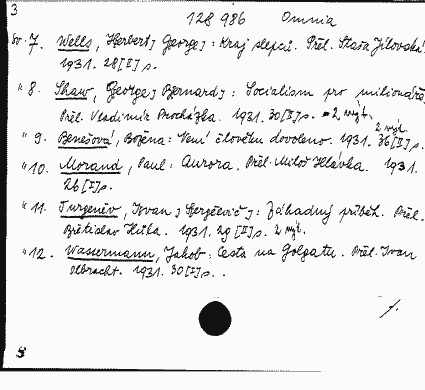 3
128 986 Omnia
Sv. 7. Wells, Herbert] George]: Kraj slepců. Přel. Staša Jílovská.
1931. 28 [I] s.
" 8. Shaw, George] Bernard]: Socialism pro milionáře.
Přel. Vladimír Procházka. 1931. 30 [I] s. 2 výt.
" 9. Benešová, Božena: Není člověku dovoleno. 1931. 36 [II] s. 2 výt.
" 10. Morand, Paul: Aurora. Přel. Miloš Hlávka. 1931.
26 [I] s.
" 11. Turgeněv, Ivan] Sergějevič]: Záhadný příběh. Přel.
Břetislav Hůla. 1931. 29 [II] s. 2 výt.
" 12. Wassermann, Jakob: Cesta na Golgatu. Přel. Ivan
Olbracht. 1931. 30 [I] s.